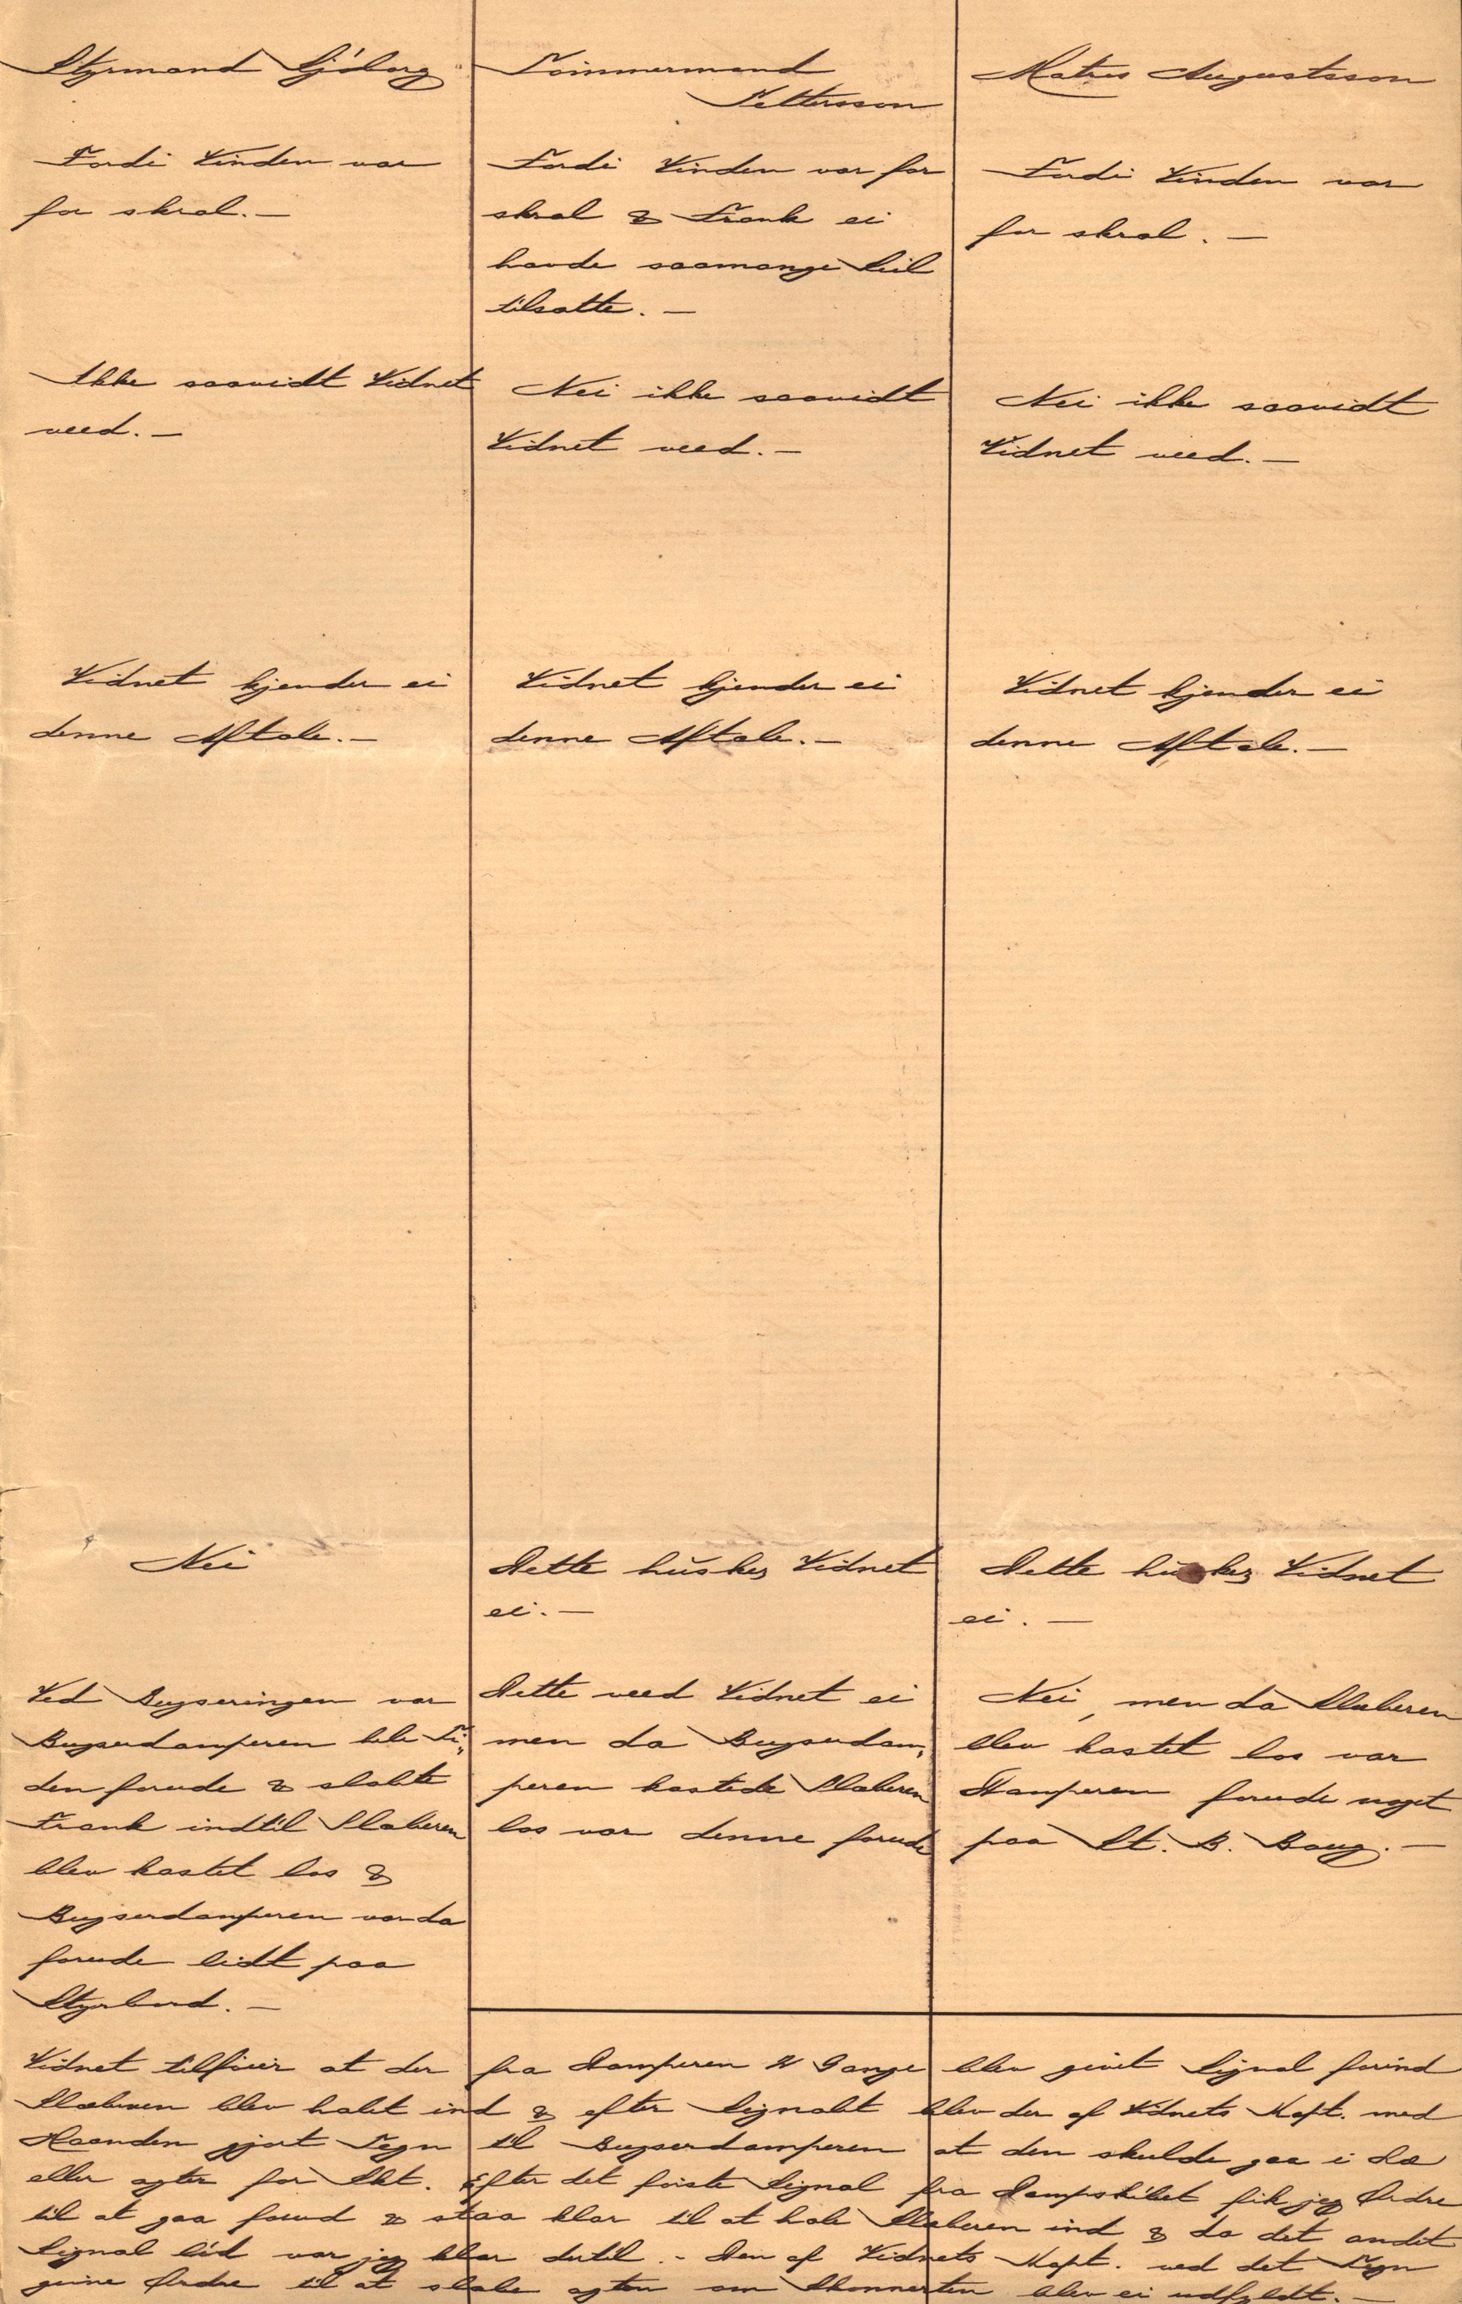 Styrmand Sjöberg
Fordi Vinden var
for skral. —
Ikke saavidt Vidnet
veed. —
Vidnet kjender ei
denne Aftale. —
Nei
Ved Bugseringen var
Bugserdamperen hele Ti„
den forude & slæbte
Frank indtil Slæberen
blev kastet los &
Bugserdamperen var da
forude lidt paa
Styrbord. —
Tömmermand
Pettersson
Fordi Vinden var for
skral & Frank ei
havde saamange Seil
tilsatte. —
Nei ikke saavidt
Vidnet veed. —
Vidnet kjender ei
denne Aftale. —
Dette husker Vidnet
ei. —
Dette veed Vidnet ei
men da Bugserdam„
peren kastede Slæberen
los var denne forude
Matros Augustsson
Fordi Vinden var
for skral. —
Nei ikke saavidt
Vidnet veed. —
Vidnet kjender ei
denne Aftale. —
Dette husker Vidnet
ei. —
Nei, men da Slæberen
blev kastet los var
Damperen forude noget
paa St. B. Boug. —
Vidnet tilföier at der fra Damperen 2 Gange blev givet Signal förind
Slæberen blev halet ind & efter Signalet blev der af Vidnets Kapt. med
Haanden gjort Tegn til Bugserdamperen at den skulde gaa i Læ
eller agter for Skt. Efter det förste Signal fra Dampskibet fik jeg Ordre
til at gaa forud & staa klar til at hale Slæberen ind & da det andet
Signal löd var jeg klar dertil. - Den af Vidnets Kapt. ved det Tegn
givne Ordre til at slæbe agten om Skonnerten blev ei udfyldt. —